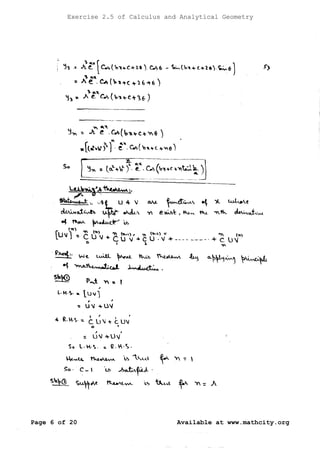 Exercise 2.5 of Calculus and Analytical Geometry
y₃ = r³ e^{ax} [Cos(bx+c+2θ) Cosθ - Sin(bx+c+2θ) Sinθ]
= r³ e^{ax} . Cos(bx+c+2θ+θ)
y₃ = r³ e^{ax} Cos(bx+c+3θ)
yₙ = rⁿ e^{ax} . Cos(bx+c+nθ)
So
Leibniz's theorem:-
Statement:- If U & V are functions of x whose
derivatives upto order n exist, then the nth derivative
of their product is
Proof:- We will prove this theorem by applying principle
of mathematical induction.
Step① Put n = 1
L.H.S = [UV]′
= U′V + UV′
= U′V + UV′
So L.H.S. = R.H.S.
Hence theorem is true for n = 1
So C-1 is satisfied.
Step② Suppose theorem is true for n = r
Page 6 of 20
Available at www.mathcity.org